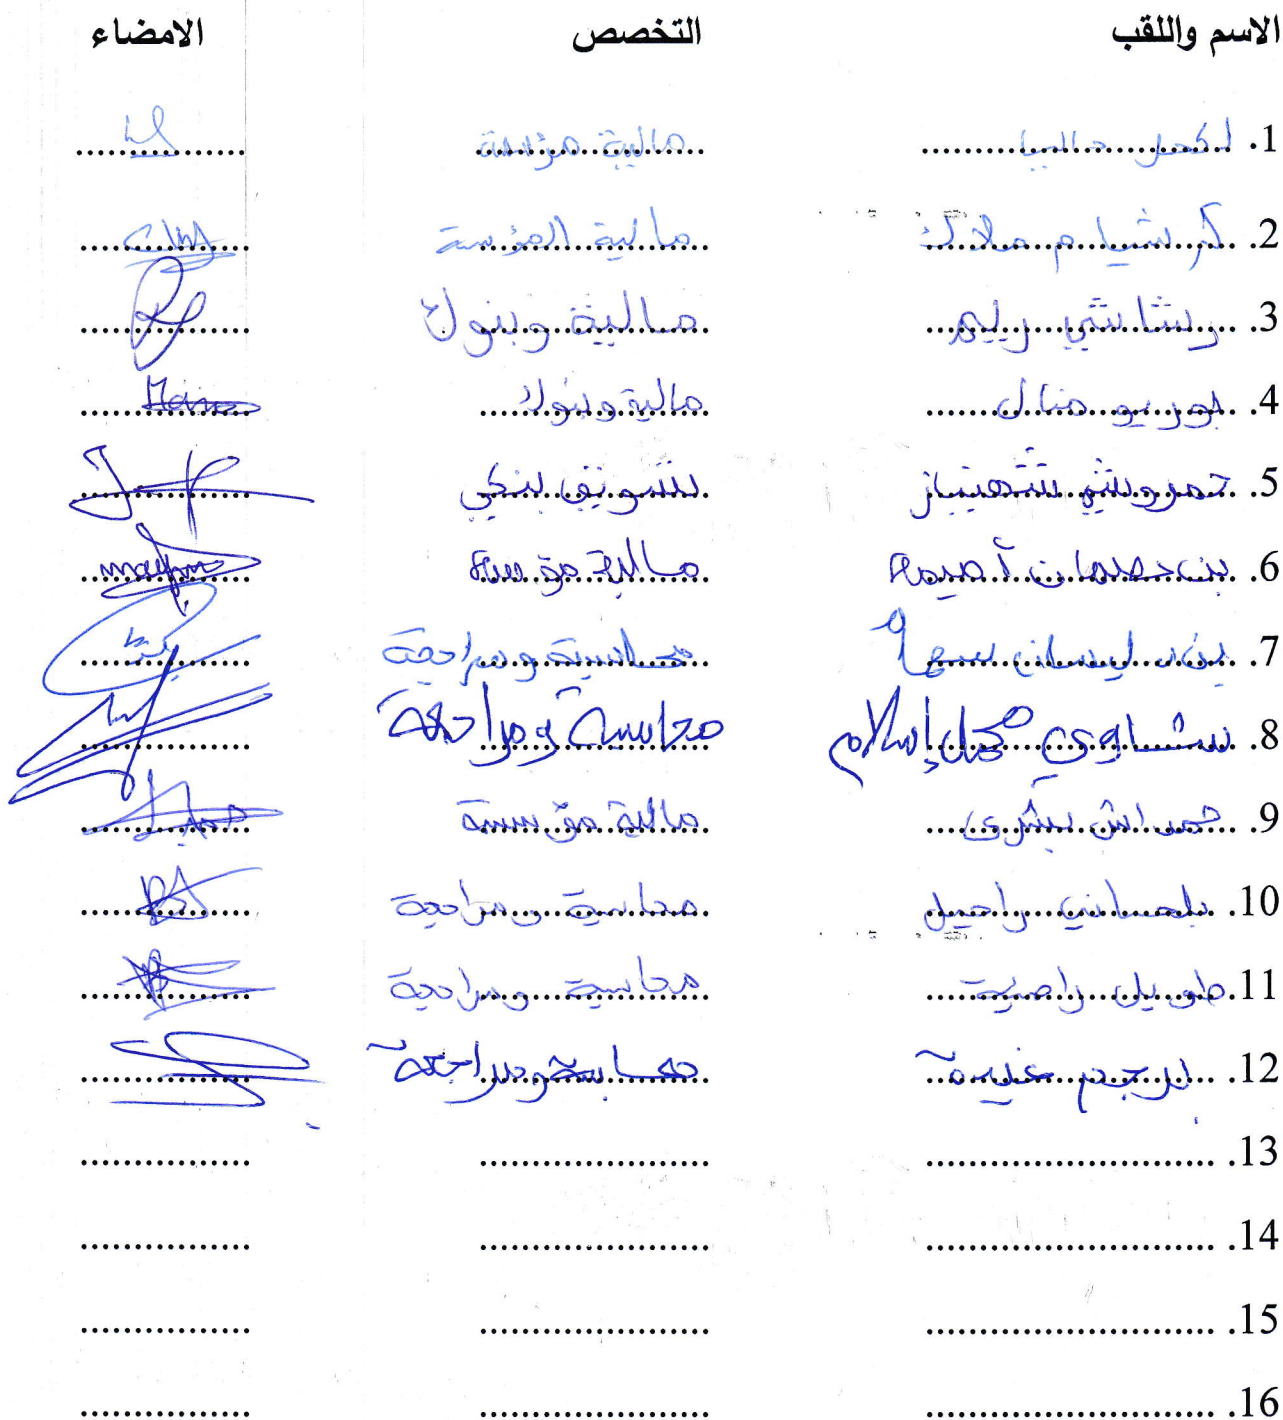 الاسم واللقب التخصص الامضاء
1. لكحل داليا مالية مؤسسة
2. ملاك مالية المؤسسة
3. رشاشي ريم مالية وبنوك
4. بوريو منال مالية وبنوك
5. حمروشي شهيناز تسويق بنكي
6. بن أميمة مالية مؤسسة
7. بن سهام محاسبة ومراجعة
8. شاوي محمد إسلام محاسبة ومراجعة
9. حمداش بشرى مالية مؤسسة
10. بلحساني راحيل محاسبة ومراجعة
11. طويل راضية محاسبة ومراجعة
12. محاسبة ومراجعة
13.
14.
15.
16.